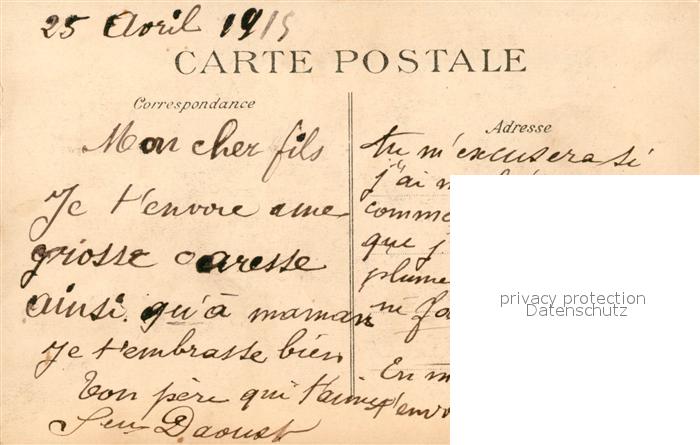 25 Avril 1915
CARTE POSTALE
Correspondance
Mon cher fils
Je t'envoie une
grosse caresse
ainsi qu'à maman
Je t'embrasse bien
Ton père qui t'aime
Daoust
Adresse
tu m'excusera si
j'ai
comme
que j
plume
ni
En
t'envo
privacy protection
Datenschutz